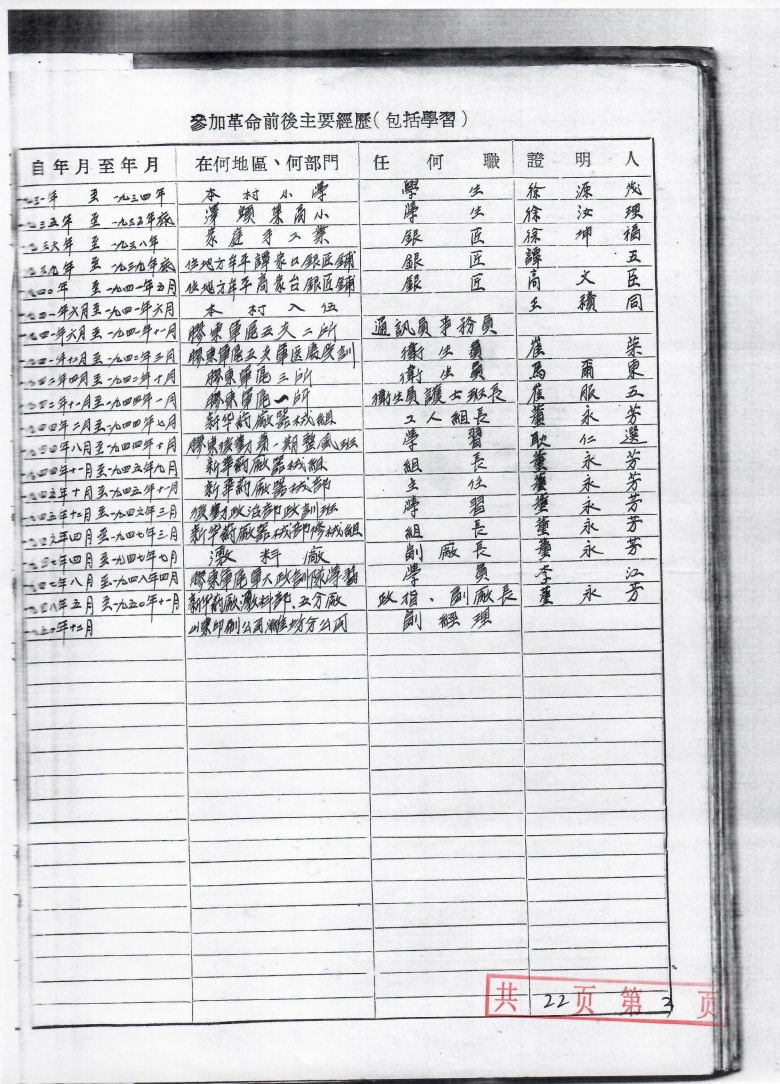 參加革命前後主要經歷(包括學習)
自年月至年月 在何地區、何部門 任何職 證明人
一九三一年 至一九三四年 本村小學 學生 徐源茂
一九三五年 至一九三五年底 澤頭集高小 學生 徐汝理
一九三六年 至一九三八年 家庭手工業 銀匠 徐坤福
一九三九年 至一九三九年底 位地方牟平譚家口銀匠鋪 銀匠 譚五
一九四〇年 至一九四一年五月 位地方牟平高家台銀匠鋪 銀匠 高文臣
一九四一年六月至一九四一年六月 本村入伍 王積同
一九四一年六月至一九四一年十一月 膠東軍區五支二所 通訊員事務員
一九四一年十二月至一九四二年三月 膠東軍區五支軍医處受訓 衛生員 崔荣
一九四二年四月至一九四二年十月 膠東軍區三所 衛生員 馬爾東
一九四二年十一月至一九四四年一月 膠東軍區一所 衛生員護士班長 崔服五
一九四四年二月至一九四四年七月 新华葯廠器械組 工人組長 董永芳
一九四四年八月至一九四四年十月 膠東後勤第一期整風班 學習 耿仁選
一九四四年十一月至一九四五年九月 新華葯廠器械組 組長 董永芳
一九四五年十月至一九四五年十一月 新華葯廠器械部 主任 董永芳
一九四五年十二月至一九四六年三月 後勤政治部政訓班 學習 董永芳
一九四六年四月至一九四七年三月 新华葯廠器械部修械組 組長 董永芳
一九四七年四月至一九四七年七月 漿料廠 副廠長 董永芳
一九四七年八月至一九四八年四月 膠東軍區軍大政訓隊學習 學員 李江
一九四八年五月至一九五〇年十一月 新华葯廠漿料部、五分廠 政指、副廠長 董永芳
一九五〇年十二月 山東印刷公司濰坊分公司 副經理
共22页第3页